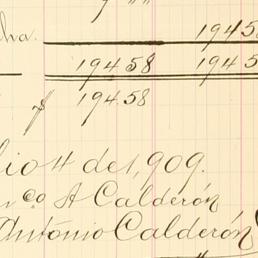 " "
lva. 1945
1945 8 1945
$ 1945 8
lio 4 de 1,909.
co A Calderón
Antonio Calderón